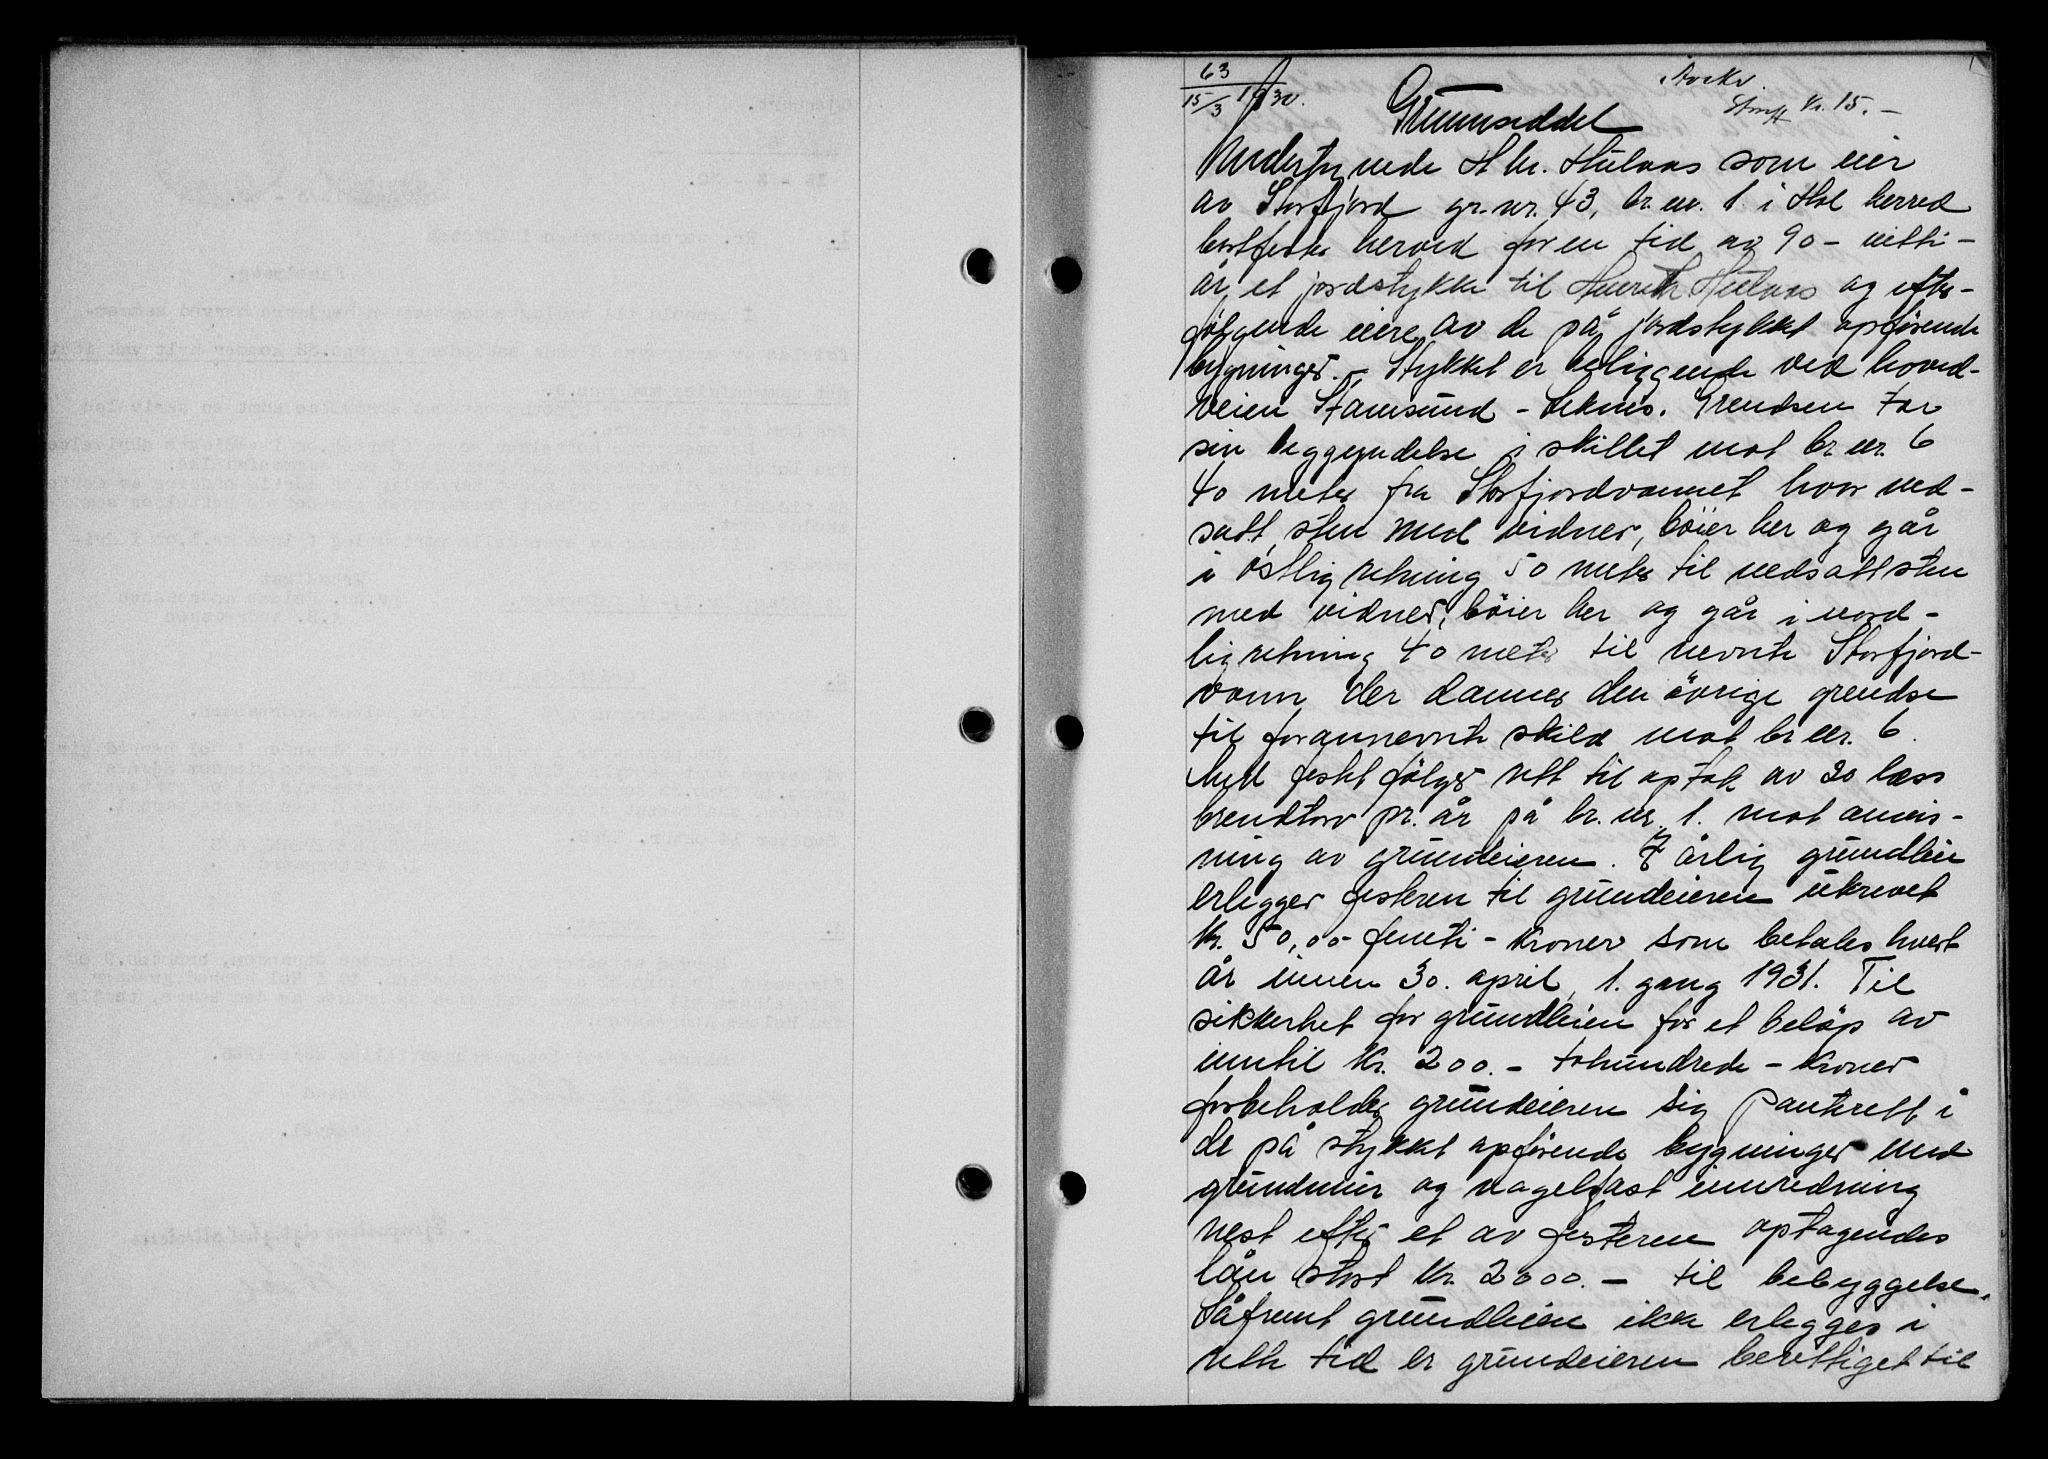 63
15/3 1930.
Avskr.
Stmpl kr. 15.-
Grunnseddel
Undertegnede H M. Hulaas som eier
av Storfjord gr. nr. 43, br. nr. 1 i Hol herred
bortfester herved for en tid av 90 - nitti -
år et jordstykke til Henrik Hulaas og efter-
følgende eiere av de på jordstykket opførende
bygninger. - Stykket er beliggende ved hoved-
veien Stamsund - Leknes. Grendsen tar
sin beggyndelse i skillet mot br. nr. 6
40 meter fra Storfjordvannet hvor ned-
satt sten med vidner, bøier her og går
i østlig retning 50 meter til nedsatt sten
med vidner, bøier her og går i nord-
lig retning 40 meter til nevnte Storfjord-
vann der danner den øvrige grendse
til forannevnte skild mot br. nr. 6.
Med festet følger rett til optak av 20 læss
brendtorv pr. år på br. nr. 1. mot anvis-
ning av grundeieren. I årlig grundleie
erlegger festeren til grundeieren ukrevet
kr. 50,00 - femti - kroner som betales hvert
år innen 30. april, 1. gang 1931. Til
sikkerhet for grundleien for et beløp av
inntil kr. 200. - tohundrede - kroner
forbeholder grundeieren sig panterett i
de på stykket opførende bygninger med
grundmur og nagelfast innredning
nest efter et av festeren optagendes
lån stort kr. 2000. - til bebyggelse.
Såfremt grundleien ikke erlegges i
rette tid er grundeieren berettiget til